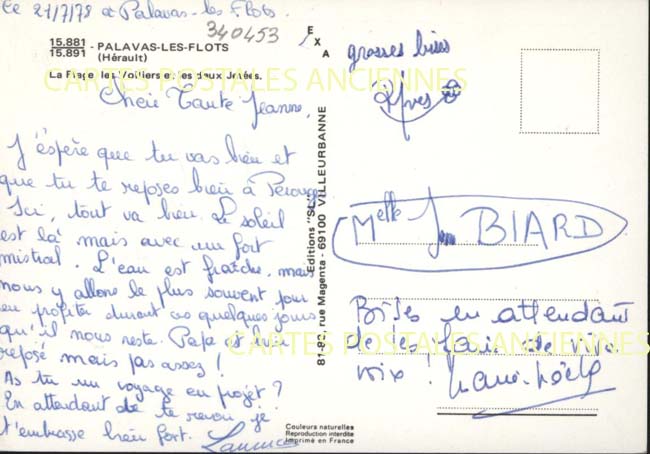 Le 21/7/78 à Palavas-les Flots.
340453
15.881
15.891 - PALAVAS-LES-FLOTS
(Hérault)
La Plage, les Voiliers et les deux Jetées.
CARTES POSTALES ANCIENNES
Chère Tante Jeanne,
J'espère que tu vas bien et
que tu te reposes bien à
Ici, tout va bien. Le soleil
est là mais avec un fort
mistral. L'eau est fraîche, mais
nous y allons le plus souvent pour
en profiter durant ces quelques jours
qu'il nous reste. Papa est bien
reposé mais pas assez !
As tu un voyage en projet ?
En attendant de te revoir je
t'embrasse bien fort.
EXA
Editions "SL"
81-83, rue Magenta - 69100 VILLEURBANNE
grosses bises
Yves
Melle BIARD
Bises en attendant
de le faire de vive
voix ! Marie-Noëlle
CARTES POSTALES ANCIENNES
Couleurs naturelles
Reproduction interdite
Imprimé en France